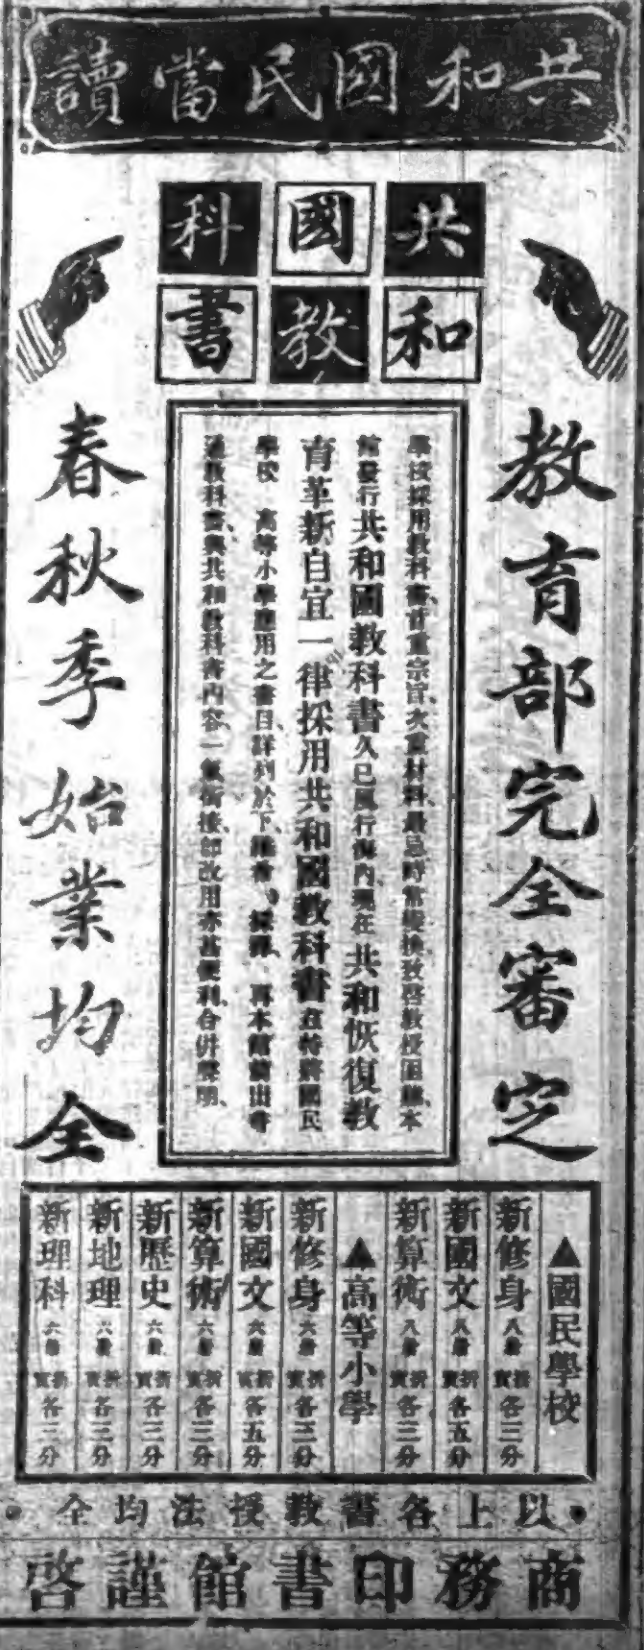 共和國民當讀
共和
國教
科書
教育部完全審定
春秋季始業均全
學校採用教科書首重宗旨次重材料最忌時常變換致啓教授困難本
館發行共和國教科書久已風行海內現在共和恢復教
育革新自宜一律採用共和國教科書茲特將國民
學校、高等小學應用之書目詳列於下採擇、再本館前出普
通教科書與共和教科書內容一氣銜接卽改用亦甚便利合併聲明、
▲國民學校
新修身 八册 折實各三分
新國文 八册 折實各五分
新算術 八册 折實各三分
▲高等小學
新修身 六册 折實各三分
新國文 六册 折實各五分
新算術 六册 折實各三分
新歷史 六册 折實各三分
新地理 六册 折實各三分
新理科 六册 折實各三分
•以上各書教授法均全•
商務印書館謹啓